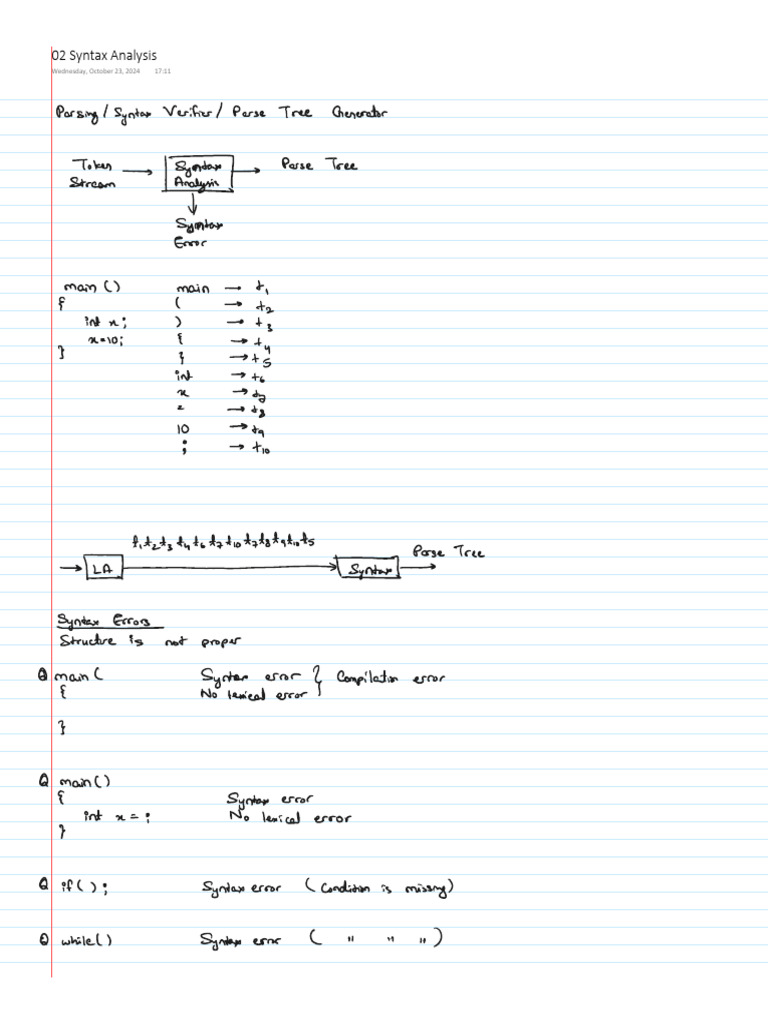 02 Syntax Analysis
Wednesday, October 23, 2024 17:11
Parsing / Syntax Verifier / Parse Tree Generator
Token Stream → Syntax Analysis → Parse Tree
↓
Syntax Error
main ()
{
int x;
x=10;
}
main → t1
( → t2
) → t3
{ → t4
} → t5
int → t6
x → t7
= → t8
10 → t9
; → t10
t1 t2 t3 t4 t6 t7 t10 t7 t8 t9 t10 t5
→ LA → Syntax → Parse Tree
Syntax Errors
Structure is not proper
Q main ( Syntax error } Compilation error
{ No lexical error
}
Q main ()
{ Syntax error
int x = ; No lexical error
}
Q if () ; Syntax error ( Condition is missing)
Q while () Syntax error ( " " " )